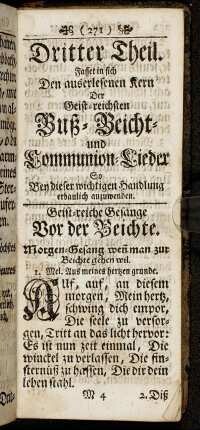 ( 271 )
Dritter Theil.
Fasset in sich
Den auserlesenen Kern
Der
Geist-reichsten
Buß- Beicht-
und
Communion-Lieder
So
Bey dieser wichtigen Handlung
erbaulich anzuwenden.
Geist-reiche Gesänge
Vor der Beichte.
Morgen-Gesang wen̄ man zur
Beichte gehen wil.
1. Mel. Aus meines hertzen grunde.
Auf, auf, an diesem
morgen, Mein hertz,
schwing dich empor,
Die seele zu versor-
gen, Tritt an das licht hervor:
Es ist nun zeit einmal, Die
winckel zu verlassen, Die fin-
sternüß zu hassen, Die dir dein
leben stahl.
M 4 2. Diß